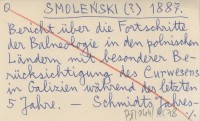 O SMOLEŃSKI (?) 1887.
Bericht über die Fortschritte
der Balneologie in den polnischen
Ländern mit besonderer Be-
rücksichtigung des Curwesens
in Galizien während der letzten
5 Jahre. — Schmidts Jahres-